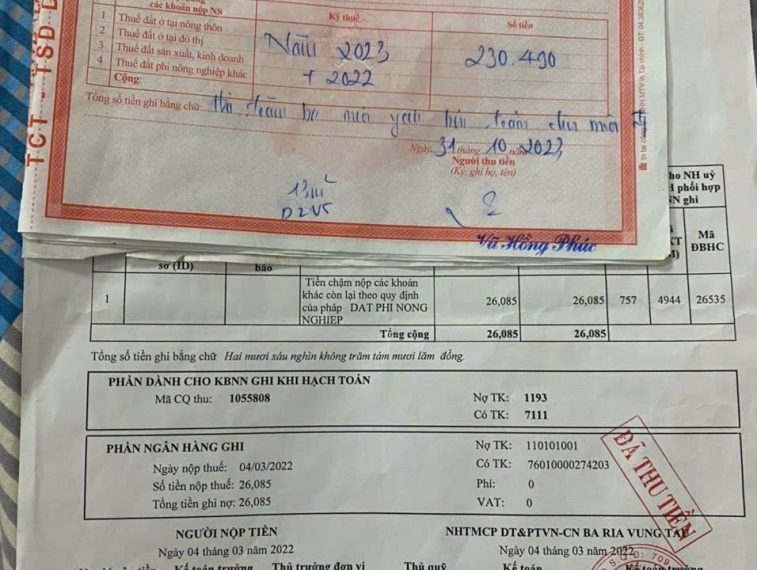 các khoản nộp NS Kỳ thuế Số tiền
1 Thuế đất ở tại nông thôn
2 Thuế đất ở tại đô thị
3 Thuế đất sản xuất, kinh doanh
4 Thuế đất phi nông nghiệp khác
Cộng:
Năm 2023
+ 2022
230.490
Tổng số tiền ghi bằng chữ:
Ngày 31 tháng 10 năm 2023
Người thu tiền
(Ký, ghi họ, tên)
13m²
Vũ Hồng Phúc
TCT - TSD
ho NH uỷ
phối hợp
N ghi
Mã
ĐBHC
số (ID) báo
1 Tiền chậm nộp các khoản
khác còn lại theo quy định
của pháp DAT PHI NONG
NGHIEP
26,085 26,085 757 4944 26535
Tổng cộng 26,085 26,085
Tổng số tiền ghi bằng chữ Hai mươi sáu nghìn không trăm tám mươi lăm đồng.
PHẦN DÀNH CHO KBNN GHI KHI HẠCH TOÁN
Mã CQ thu: 1055808
Nợ TK: 1193
Có TK: 7111
PHẦN NGÂN HÀNG GHI
Ngày nộp thuế: 04/03/2022
Số tiền nộp thuế: 26,085
Tổng tiền ghi nợ: 26,085
Nợ TK: 110101001
Có TK: 76010000274203
Phí: 0
VAT: 0
ĐÃ THU TIỀN
NGƯỜI NỘP TIỀN
Ngày 04 tháng 03 năm 2022
NHTMCP DT&PTVN-CN BA RIA VUNG TAU
Ngày 04 tháng 03 năm 2022
Kế toán trưởng Thủ trưởng đơn vị Thủ quỹ Kế toán Kế toán trưởng